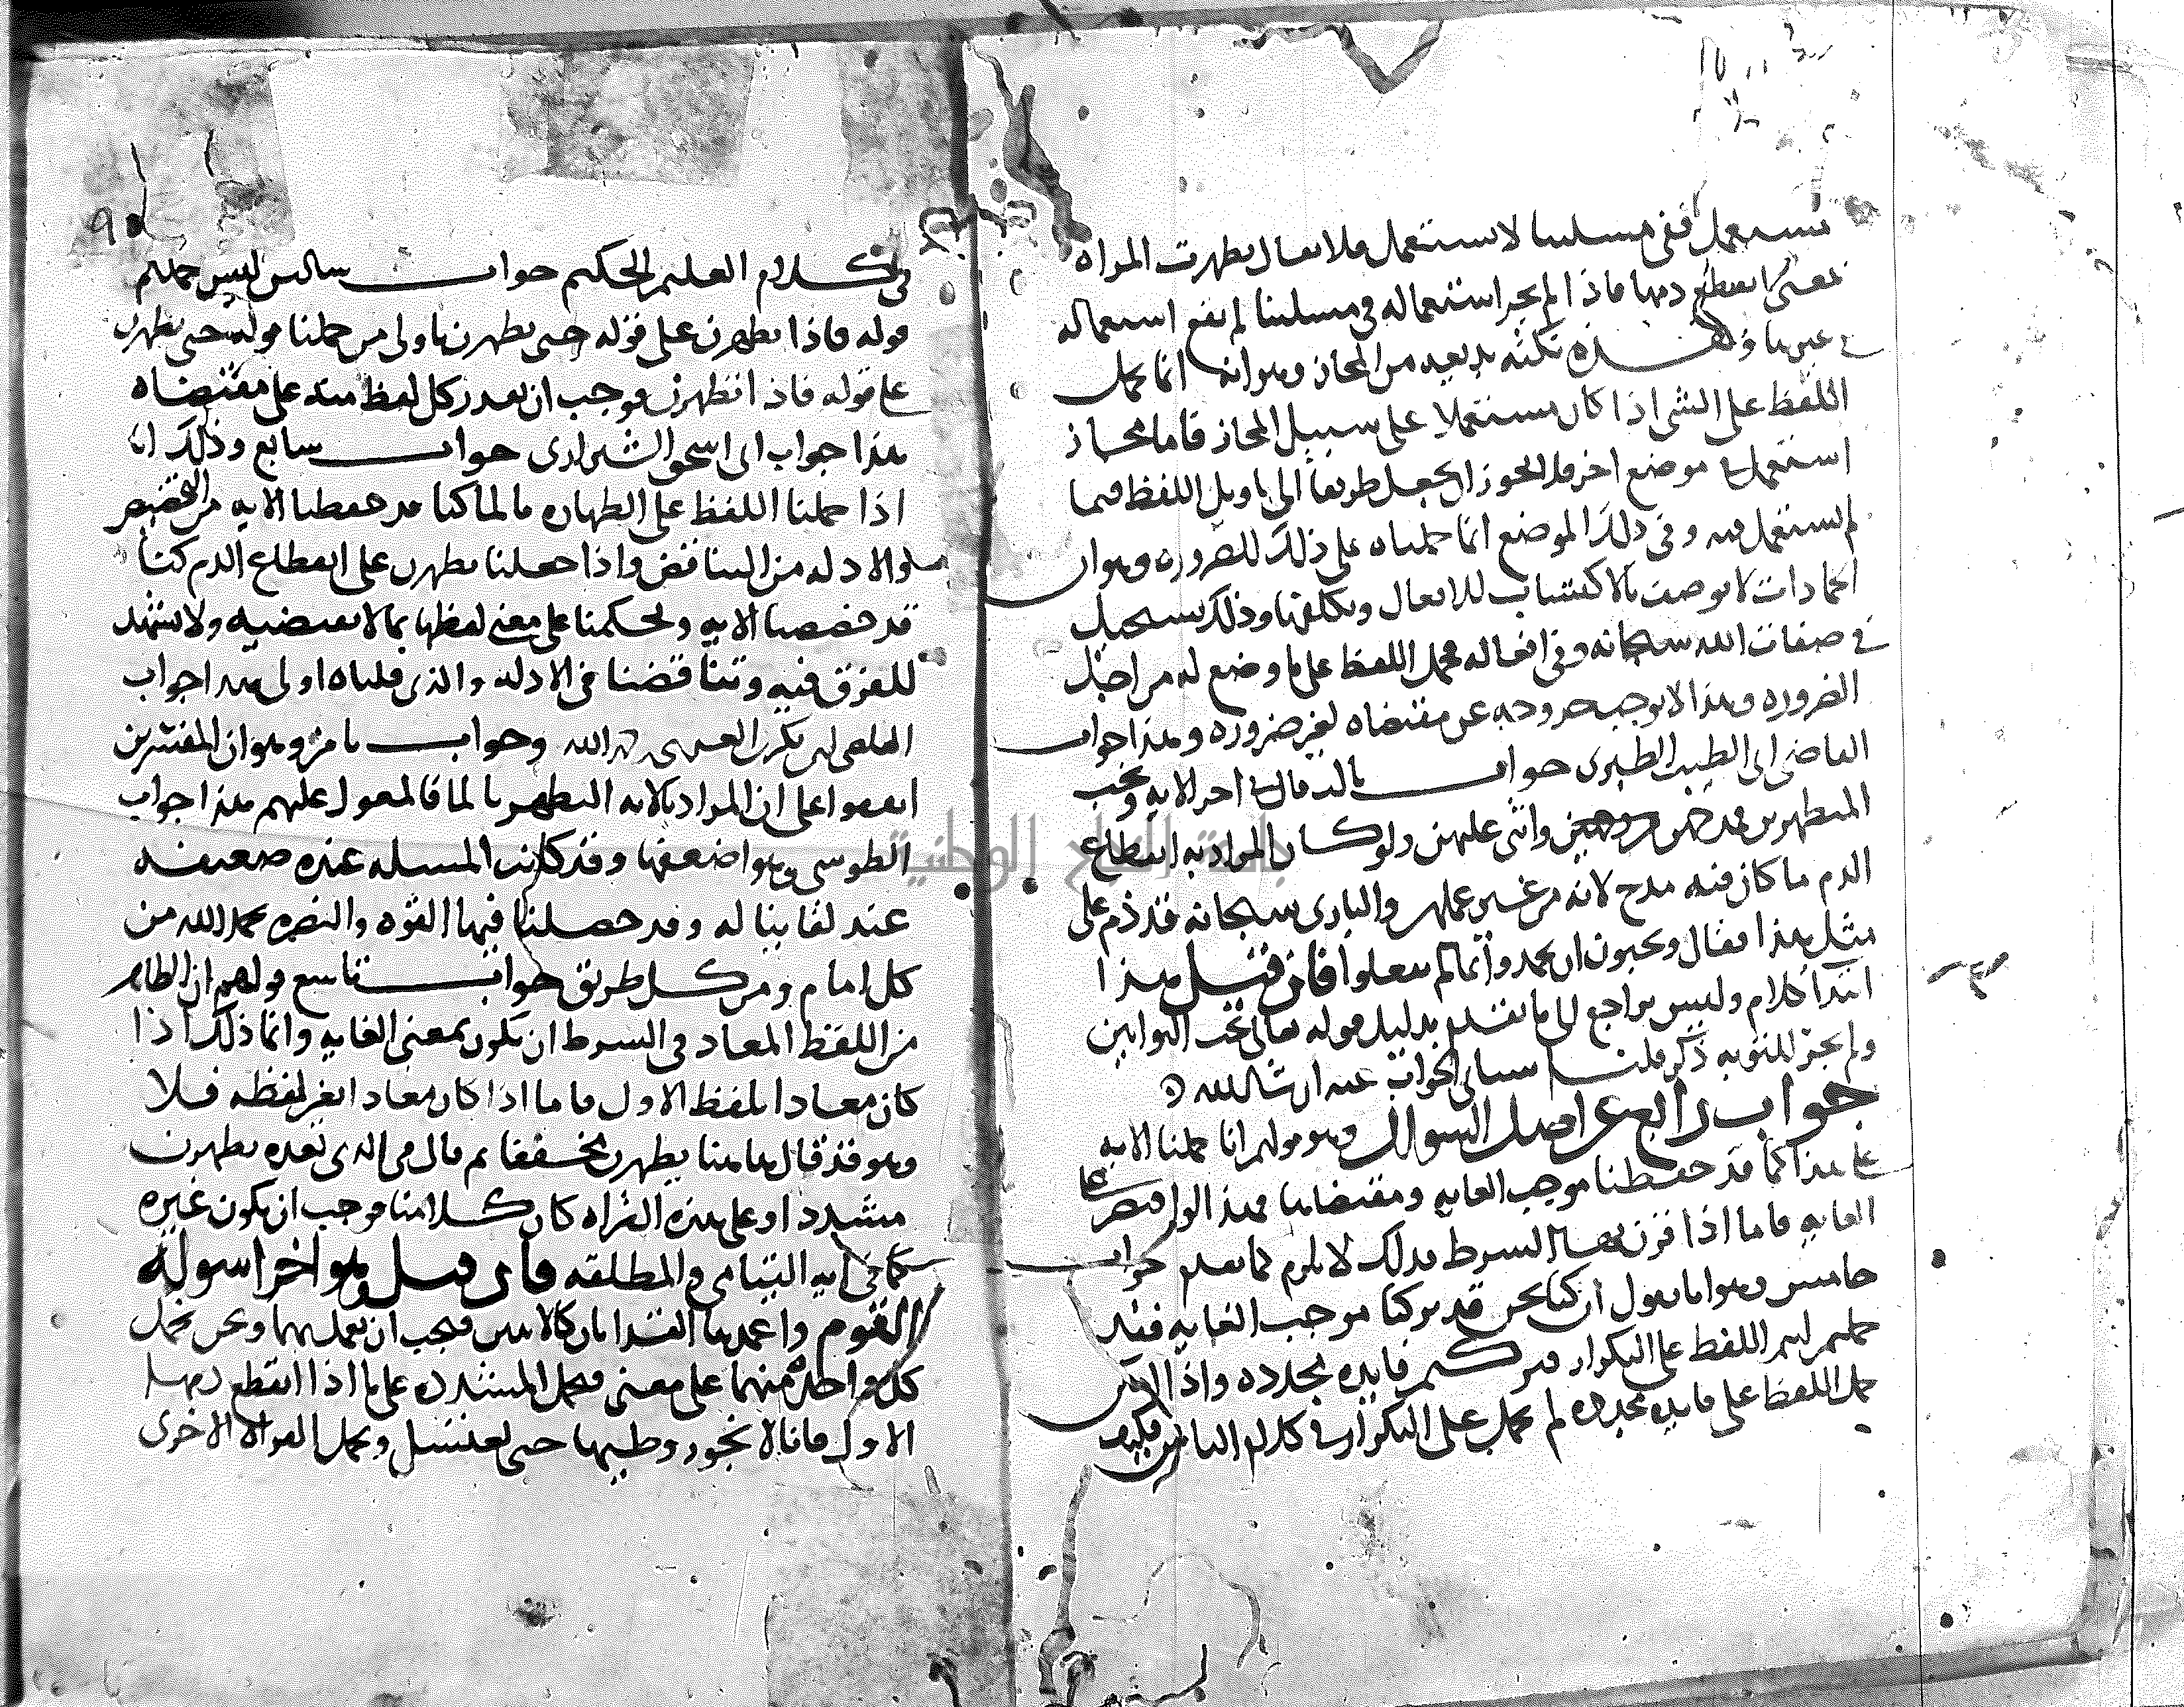 يستعمل ففي مسلتنا لا يستعمل فلا يقال تطهرت المراه
بمعنى انقطع دمها فاذا لم يجز استعماله في مسلتنا لم ينفع استعماله
في غيرها وهذه نكته بديعه من المجاز وهو انه انما يحمل
اللفظ على الشي اذا كان مستعملا على سبيل المجاز فاما مجاز
استعمل في موضع اخر فلا يجوز ان يجعل طريقا الى تاويل اللفظ فيما
لم يستعمل فيه وفي ذلك الموضع انما حملناه على ذلك للضروره وهو ان
الجمادات لا توصف بالاكتساب للافعال وتكلفها وذلك يستحيل
في صفات الله سبحانه وفي افعاله فحمل اللفظ على ما وضع له من اجل
الضروره وهذا لا يوجب خروجه عن مقتضاه لغير ضروره وهذا جواب
القاضي ابي الطيب الطبري جواب ثالث قال في اخر الايه ويحب
المتطهرين فمدحهن واثنى عليهن ولو كان المراد به انقطاع
الدم ما كان فيه مدح لانه من غير عملهن والباري سبحانه قد ذم على
مثل هذا فقال ويحبون ان يحمدوا بما لم يفعلوا فان قيل هذا
ابتدا كلام وليس براجع الى ما تقدم بدليل قوله تعالى يحب التوابين
ولم يجز للتوبه ذكر قلنا سياتي الجواب عنه ان شا الله
جواب رابع عن اصل السوال وهو قولهم انا حملنا الايه
على هذا كما قد حفظنا موجب الغايه ومقتضاها فهذا انما
الغايه فاما اذا قرن بها الشرط فذلك لا يلزم كما تقدم جواب
خامس وهو انا نقول ان كنا نحن قد تركنا موجب الغايه فقد
حملتم انتم اللفظ على التكرار فتركتم فايده مجدده واذا امكن
حمل اللفظ على فايده مجدده لم يحمل على التكرار في كلام الناس فكيف
في كلام العليم الحكيم جواب سادس ليس حملكم
قوله فاذا تطهرن على قوله حتى يطهرن باولى من حملنا قوله حتى يطهرن
على قوله فاذا تطهرن فوجب ان يقدر كل لفظ منه على مقتضاه
هذا جواب ابي اسحق الشيرازي جواب سابع وذلك انا
اذا حملنا اللفظ على الطهاره بالما كنا قد حفظنا الايه من التخصيص
والادله من التناقض واذا حملنا تطهرن على انقطاع الدم كنا
قد خصصنا الايه وتحكمنا على معنى لفظها بما لا يقتضيه ولا يشهد
للفرق فيه وتناقضنا في الادله والذي قلناه اولى هذا جواب
القاضي ابي بكر رحمه الله وجواب ثامن وهو ان المفسرين
اتفقوا على ان المراد بالايه التطهر بالما فالمعول عليهم هذا جواب
الطوسي وهو اضعفها وقد كانت المسله عنده ضعيفه
عند لقاينا له وقد حصلنا فيها القوه والنصره بحمد الله من
كل امام ومن كل طريق جواب تاسع قولهم ان الظاهر
من اللفظ المعاد في الشرط ان يكون بمعنى الغايه وانما ذلك اذا
كان معادا بلفظ الاول فاما اذا كان معادا بغير لفظه فلا
وهو قد قال هاهنا يطهرن مخففا ثم قال في الذي بعده تطهرن
مشددا وعلى هذه القراه كان كلامنا فوجب ان يكون غيره
كما في ايه اليتامى والمطلقه فان قيل وهو اخر اسوله
القوم واعمدها القراتان كالايتين فيجب ان يعمل بهما ونحن نحمل
كل واحده منهما على معنى فنحمل المشدده على ما اذا انقطع دمها
الاول فانا لا نجوز وطيها حتى تغتسل ونحمل القراه الاخرى